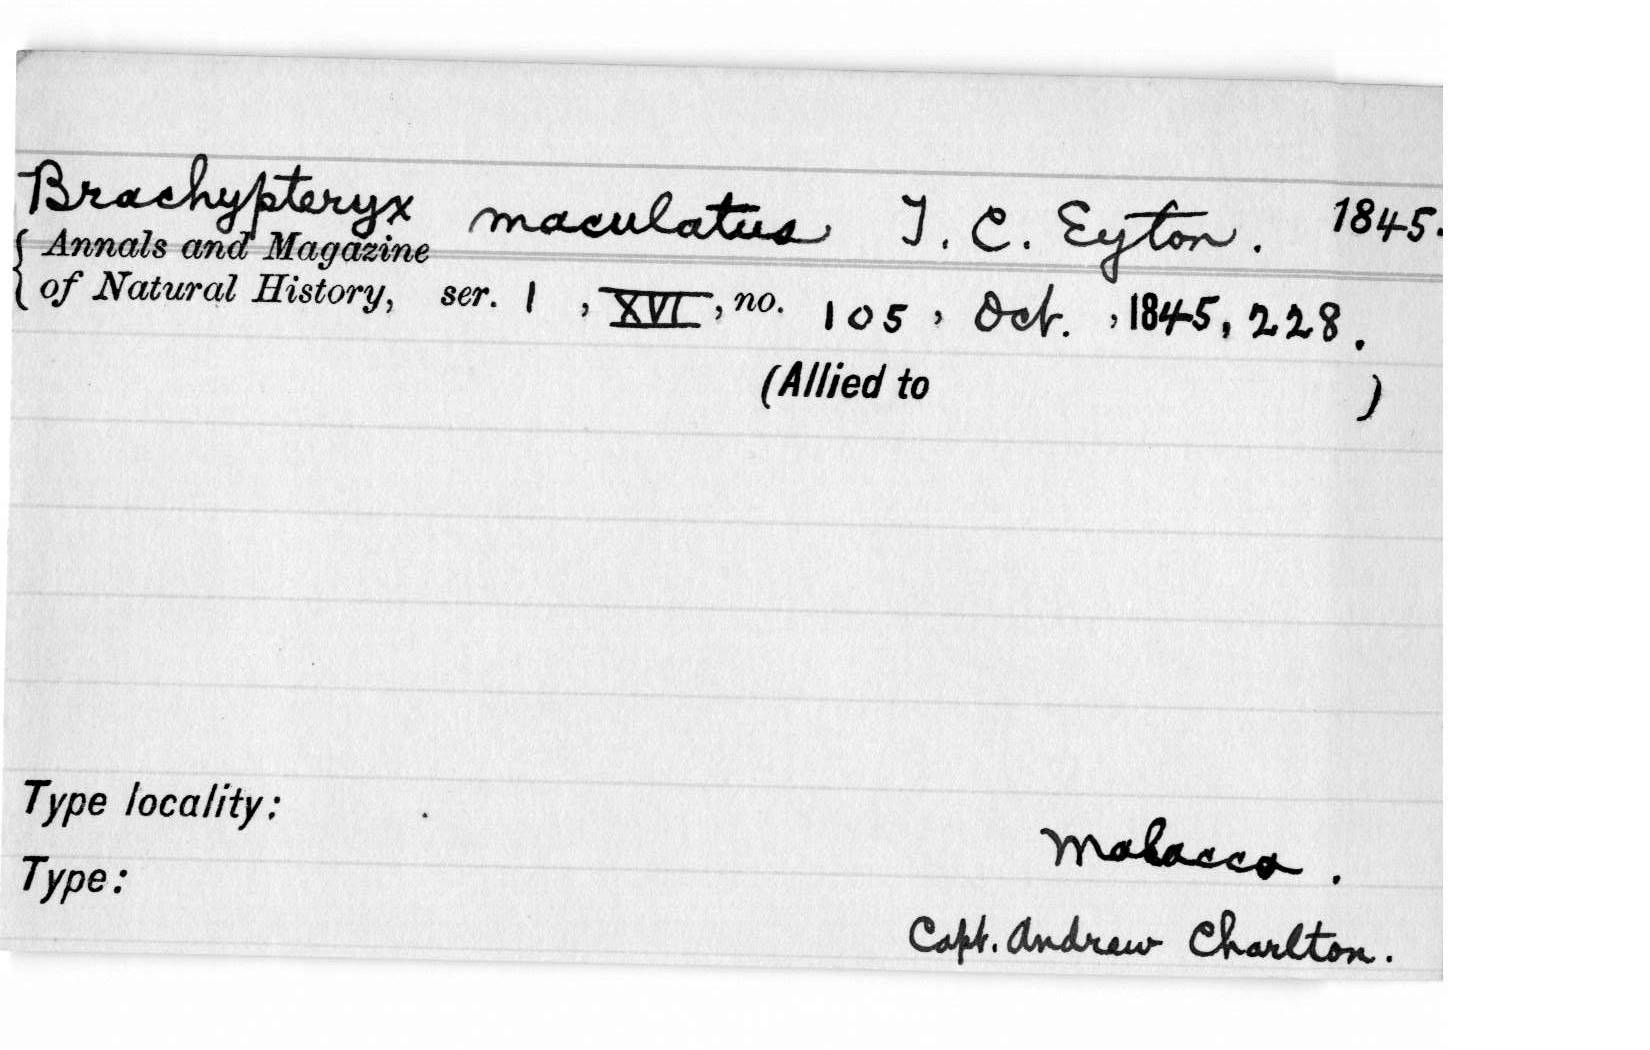 Brachypteryx maculatus T. C. Eyton. 1845.
{ Annals and Magazine
of Natural History, ser. 1, XVI, no. 105, Oct., 1845, 228.
(Allied to )
Type locality: Malacca.
Type:
Capt. Andrew Charlton.